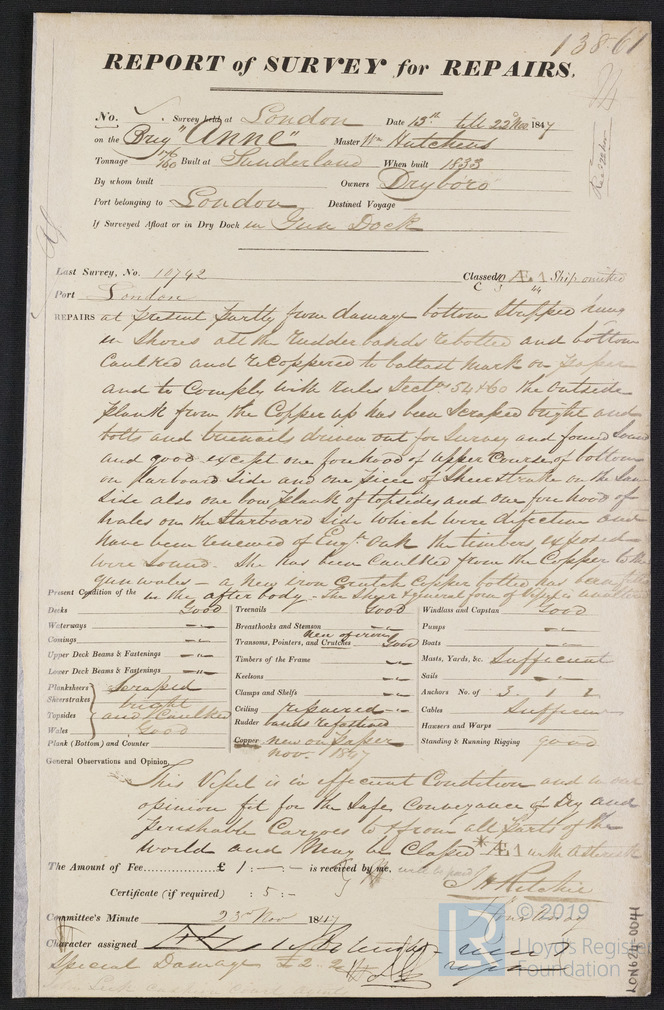 13861
REPORT of SURVEY for REPAIRS.
No. Survey held at London Date 15th till 22d Nov. 1847
on the Brig "Anne" Master Wm Hutchens
Tonnage 176/60 Built at Sunderland When built 1833
By whom built Owners Dryboro
Port belonging to London Destined Voyage
If Surveyed Afloat or in Dry Dock in Gun Dock
Last Survey, No. 10742 Classed Æ 1 Ship omitted
Port London
REPAIRS at present partly from damage bottom stripped hung
in shores all the rudder bands rebolted and bottom
caulked and recoppered to ballast mark on paper
and to comply with rules Sectn 54 & 60 the outside
plank from the Copper up has been scraped bright and
bolts and treenails driven out for survey and found sound
and good except one forehood of upper course of bottom
on larboard side and one piece of sheerstrake on the same
side also one bow plank of topsides and one fore hood of
wales on the starboard side which were defective and
have been renewed of Engh Oak the timbers exposed
were sound. She has been caulked from the Copper to the
gunwales - a new iron crutch copper bolted has been
in the after body. The sheer & general form of Vessel is
Present Condition of the
Decks Good
Waterways " "
Comings " "
Upper Deck Beams & Fastenings " "
Lower Deck Beams & Fastenings " "
Planksheers scraped
Sheerstrakes bright
Topsides and Caulked
Wales Good
Plank (Bottom) and Counter
Treenails Good
Breasthooks and Stemson " "
Transoms, Pointers, and Crutches new of iron Good
Timbers of the Frame " "
Keelsons " "
Clamps and Shelfs " "
Ceiling repaired " "
Rudder bands refastened
Copper new on paper
Nov. 1847
Windlass and Capstan Good
Pumps " "
Boats " "
Masts, Yards, &c. Sufficient
Sails " "
Anchors No. of 3 . 1 . 2
Cables Sufficient
Hawsers and Warps
Standing & Running Rigging good
General Observations and Opinion,
This Vessel is in efficient Condition and in our
opinion fit for the safe Conveyance of Dry and
Perishable Cargoes to & from all parts of the
World and may be Classed *Æ 1 with asterisk
The Amount of Fee £ 1 : - : - is received by me,
Certificate (if required) : 5 : -
J H Ritchie
Committee's Minute 23d Nov 1847
Character assigned
Special Damage £2 . 2
LON624-0041
© 2019
LR
Lloyd's Register
Foundation